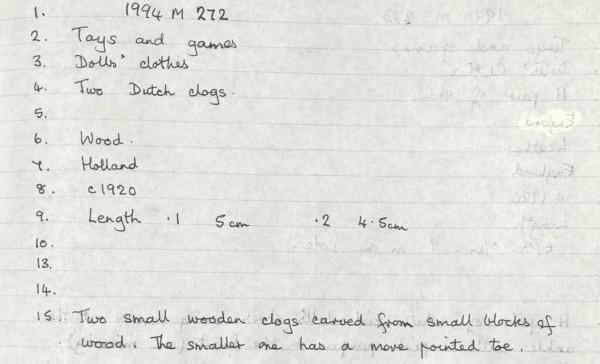 1. 1994 M 272
2. Toys and games
3. Dolls' clothes
4. Two Dutch clogs.
5.
6. Wood.
7. Holland
8. c1920
9. Length .1 5cm .2 4.5cm
10.
13.
14.
15. Two small wooden clogs carved from small blocks of
wood. The smaller one has a more pointed toe.